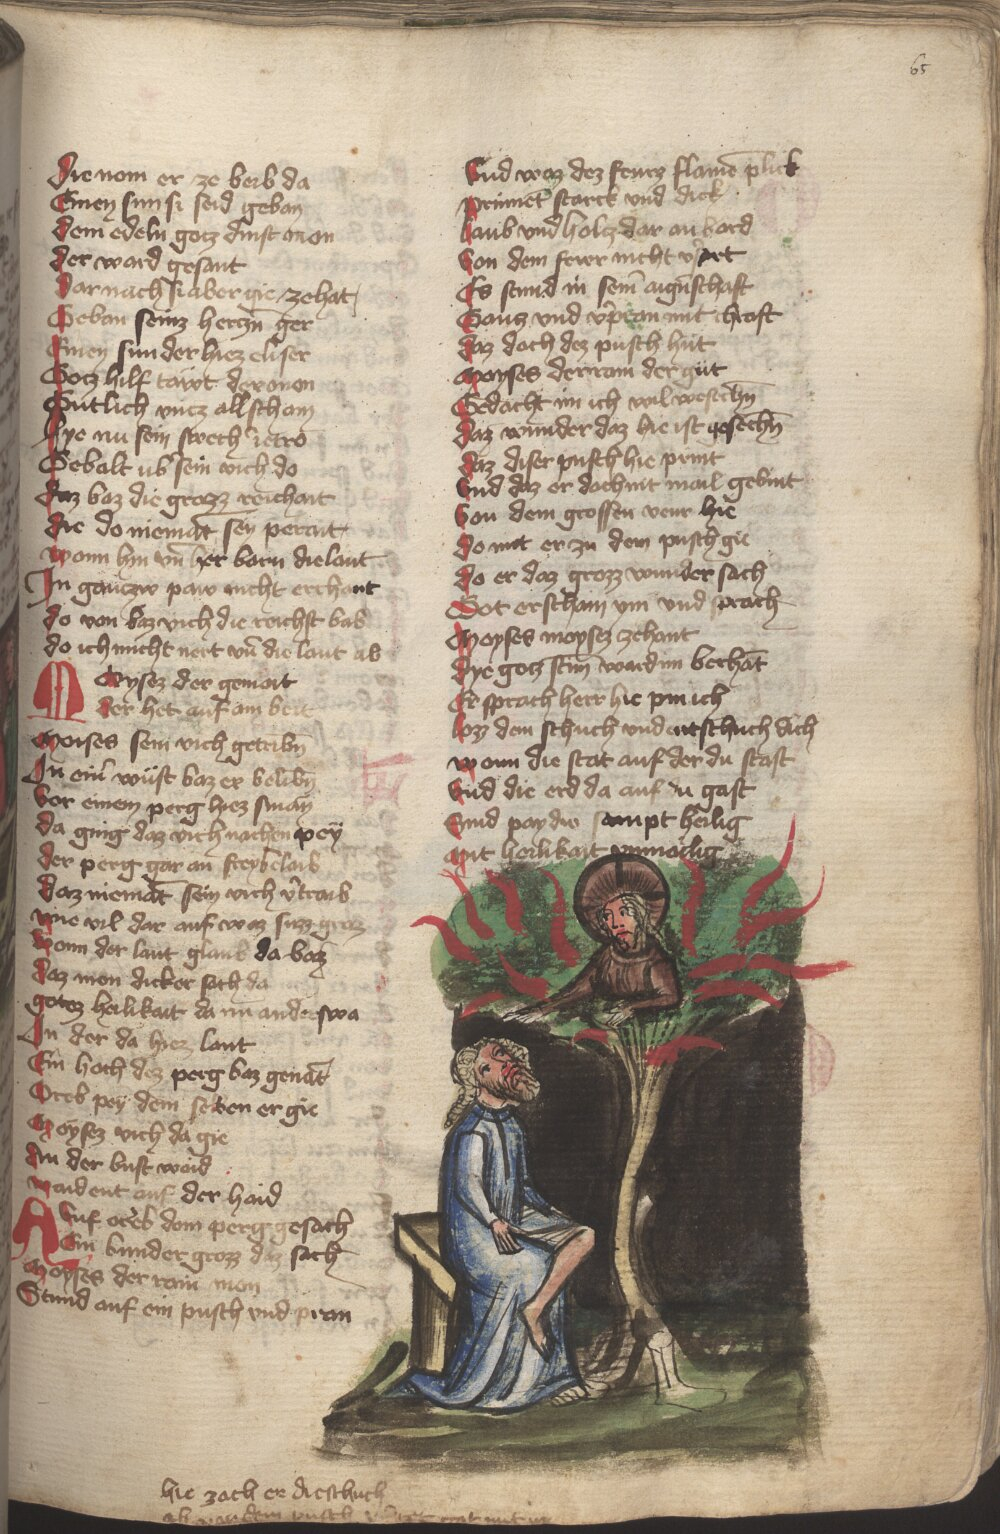 65
Die nom er ze beib da
Einen sun si seid geban
Dem edeln gotz dinst man
Der ward gesant
Dar nach si aber gie zehat
Geban seinz herczn ger
Einen sun der hiez eliser
Gotz hilf
Gütlich vncz all scham
Dye nu sein swech ietro
Gebalt üb sein vich do
Daz baz die grozz reichait
die do niemāt sey perait
wann hin vn̄ her barn die laut
In ganczw paw nicht erchant
do von baz vich die reichst hab
do ich nicht nert vn̄ die laut ab
Moysez der gemait
der het auf am beit
Moises sein vich getribn̄
In ein wüst baz er belibn̄
Vor einem perg hiez sinay
da ging daz vich nachen pey
der perg gar an
daz niemāt sein vich vtraib
wie vil dar auf waz suzz graz
wann der laut glaub da baz
Daz man dicker sach da
gotez heilikait da nū anderswa
In der da hiez laut
Ein hoch dez perg baz genāt
Oreb pey dem selben er gie
Moysez vich da gie
An der bust waid
waident auf der haid
Auf oreb dem perg gesach
Ein bunder grozz daz sach
Moyses der rain man
Stund auf ein pusch vnd pran
Vnd waz dez feurz flame plick
prinnet starck vnd dick
laub vnd holz dar an bard
Von dem fewr nicht
Es stund in seiner aigenschaft
Gancz vnd vpran mit chraft
Daz doch dez pusch hüt
Moyses der rain der güt
Gedacht im ich wil wesechn̄
Daz wunder daz hie ist gesechn̄
Daz diser pusch hie print
Vnd daz er doch nit mail gebint
Von dem grossen veur hie
do mit er zu dem pusch gie
do er daz grozz wunder sach
Got erscham ym vnd sprach
Moyses moysez zehant
dye gotz stim ward im bechāt
Er sprach herr hie pin ich
lozz dein schuch vnd entschuch dich
wann die stat auf der du stast
Vnd die erd da auf du gast
Sind paydiw sampt heilig
mit heilikait vnmailig
hie zoch er die schuch
ab